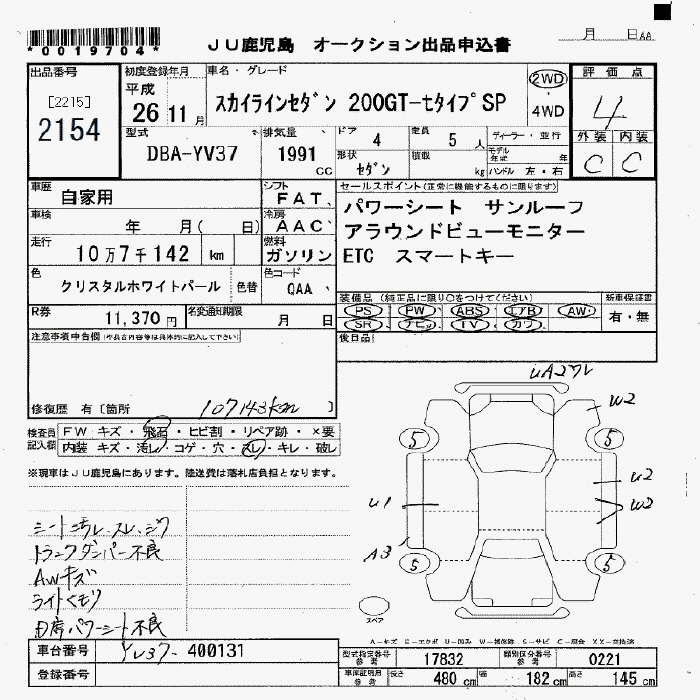 *0019704*
JU鹿児島 オークション出品申込書
月 日
出品番号
[2215]
2154
初度登録年月
平成
26 11 月
車名・グレード
スカイラインセダン 200GT-tタイプSP
2WD
・
4WD
評価点
4
外装 内装
C C
型式
DBA-YV37
排気量
1991
CC
ドア
4
定員
5 人
ディーラー・並行
形状
セダン
積載
kg
モデル年式
年
ハンドル 左・右
車歴
自家用
シフト
FAT
車検
年 月( 日)
冷房
AAC
走行
10万7千142 km
燃料
ガソリン
色
クリスタルホワイトパール
色替
色コード
QAA
R券
11,370 円
名変通知期限
月 日
セールスポイント(正常に機能するものに限ります)
パワーシート サンルーフ
アラウンドビューモニター
ETC スマートキー
装備品 (純正品に限り○をつけてください)
PS ・ PW ・ ABS ・ エアB ・ AW
SR ・ ナビ ・ TV ・ カワ
新車保証書
有・無
後日品
注意事項申告欄
修復歴 有〔箇所 107143km 〕
検査員記入欄
FW キズ・飛石・ヒビ割・リペア跡・×要
内装 キズ・汚れ・コゲ・穴・スレ・キレ・破レ
※現車はJU鹿児島にあります。陸送費は落札店負担となります。
シート汚レ、スレ、シワ
トランクダンパー不良
AWキズ
ライトくもり
助席パワーシート不良
UA2ワレ
W2
5 5
U2
U1
W2
A3
5 5
スペア
車台番号
YV37-400131
登録番号
型式指定番号
参考
17832
類別区分番号
参考
0221
車庫証明用
参考
長さ 480 cm 幅 182 cm 高さ 145 cm